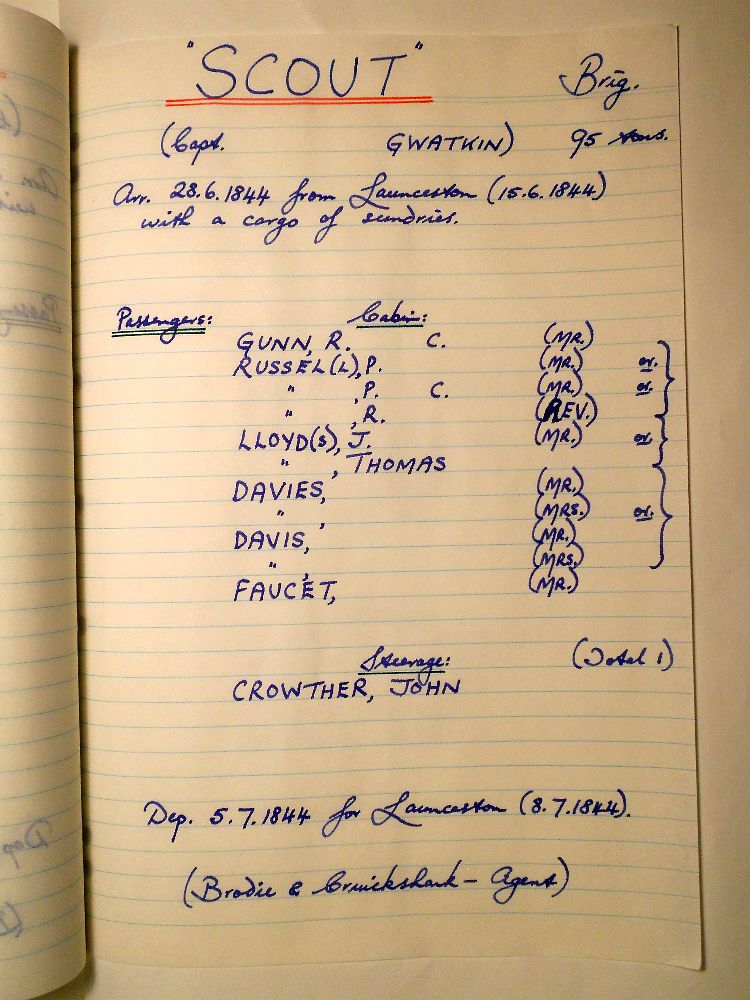 "SCOUT" Brig.
(Capt. GWATKIN) 95 tons.
Arr. 28.6.1844 from Launceston (15.6.1844)
with a cargo of sundries.
Passengers: Cabin:
GUNN, R. C. (MR.)
RUSSEL(L), P. (MR.) or.
" , P. C. (MR.) or.
" , R. (REV.)
LLOYD(S), J. (MR.) or.
" , THOMAS
DAVIES, (MR.)
" , (MRS.) or.
DAVIS, (MR.)
" , (MRS.)
FAUCET, (MR.)
Steerage: (Total 1)
CROWTHER, JOHN
Dep. 5.7.1844 for Launceston (8.7.1844).
(Brodie & Cruickshank - Agent)